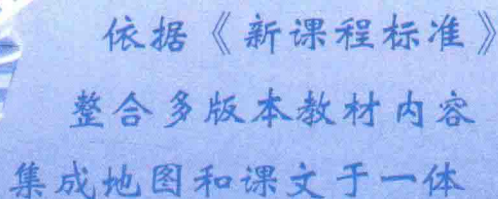 依据《新课程标准》
整合多版本教材内容
集成地图和课文于一体